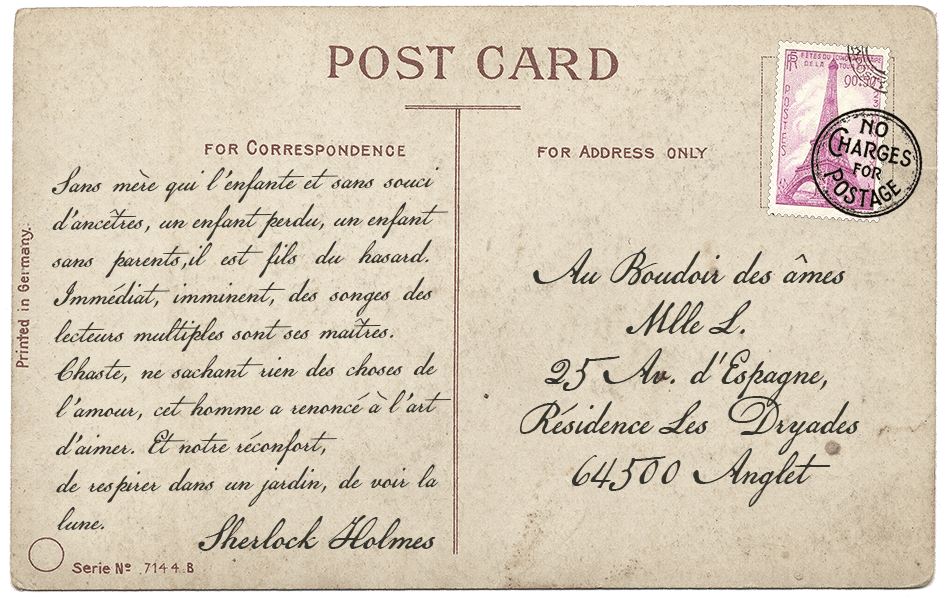 POST CARD
FOR CORRESPONDENCE
Sans mère qui l'enfante et sans souci
d'ancêtres, un enfant perdu, un enfant
sans parents,il est fils du hasard.
Immédiat, imminent, des songes des
lecteurs multiples sont ses maîtres.
Chaste, ne sachant rien des choses de
l'amour, cet homme a renoncé à l'art
d'aimer. Et notre réconfort,
de respirer dans un jardin, de voir la
lune.
Sherlock Holmes
Serie Nº 7144 B
Printed in Germany.
FOR ADDRESS ONLY
Au Boudoir des âmes
Mlle L.
25 Av. d'Espagne,
Résidence Les Dryades
64500 Anglet
RF
FÊTES DU
DE LA TOUR
POSTES
NO
CHARGES
FOR
POSTAGE